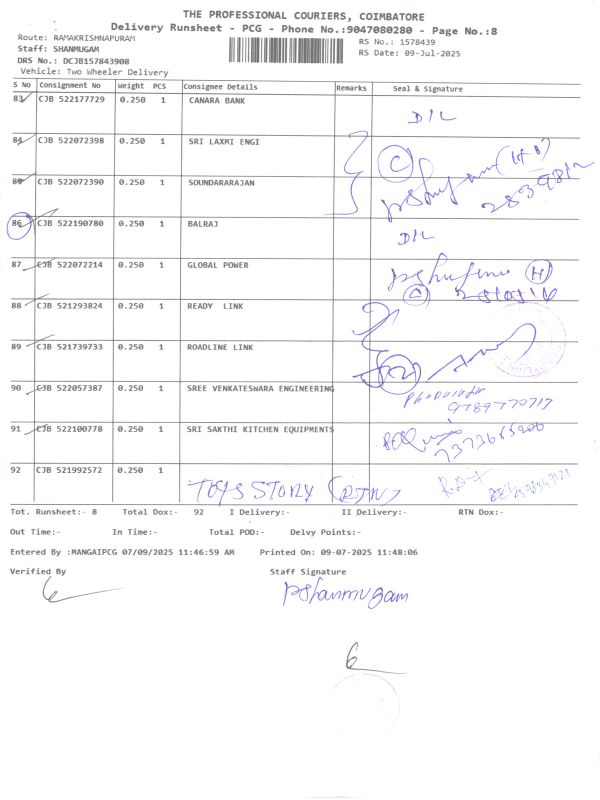 THE PROFESSIONAL COURIERS, COIMBATORE
Delivery Runsheet - PCG - Phone No.:9047080280 - Page No.:8
Route: RAMAKRISHNAPURAM
RS No.: 1578439
Staff: SHANMUGAM
RS Date: 09-Jul-2025
DRS No.: DCJB157843908
Vehicle: Two Wheeler Delivery
S No Consignment No Weight PCS Consignee Details Remarks Seal & Signature
83 CJB 522177729 0.250 1 CANARA BANK D/L
84 CJB 522072398 0.250 1 SRI LAXMI ENGI
85 CJB 522072390 0.250 1 SOUNDARARAJAN
86 CJB 522190780 0.250 1 BALRAJ D/L
87 CJB 522072214 0.250 1 GLOBAL POWER
88 CJB 521293824 0.250 1 READY LINK
89 CJB 521739733 0.250 1 ROADLINE LINK
90 CJB 522057387 0.250 1 SREE VENKATESWARA ENGINEERING
91 CJB 522100778 0.250 1 SRI SAKTHI KITCHEN EQUIPMENTS
92 CJB 521992572 0.250 1 TOYS STORY (RTN)
Tot. Runsheet:- 8 Total Dox:- 92 I Delivery:- II Delivery:- RTN Dox:-
Out Time:- In Time:- Total POD:- Delvy Points:-
Entered By :MANGAIPCG 07/09/2025 11:46:59 AM Printed On: 09-07-2025 11:48:06
Verified By Staff Signature
PShanmugam